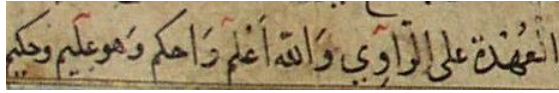 العهدة على الراوي وَالله اَعلم وَاحكم وَهو عليم وحكيم